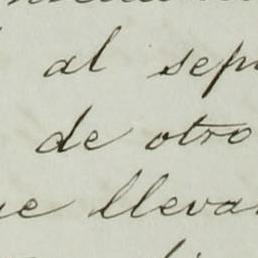 al sep
de otro
ue lleva